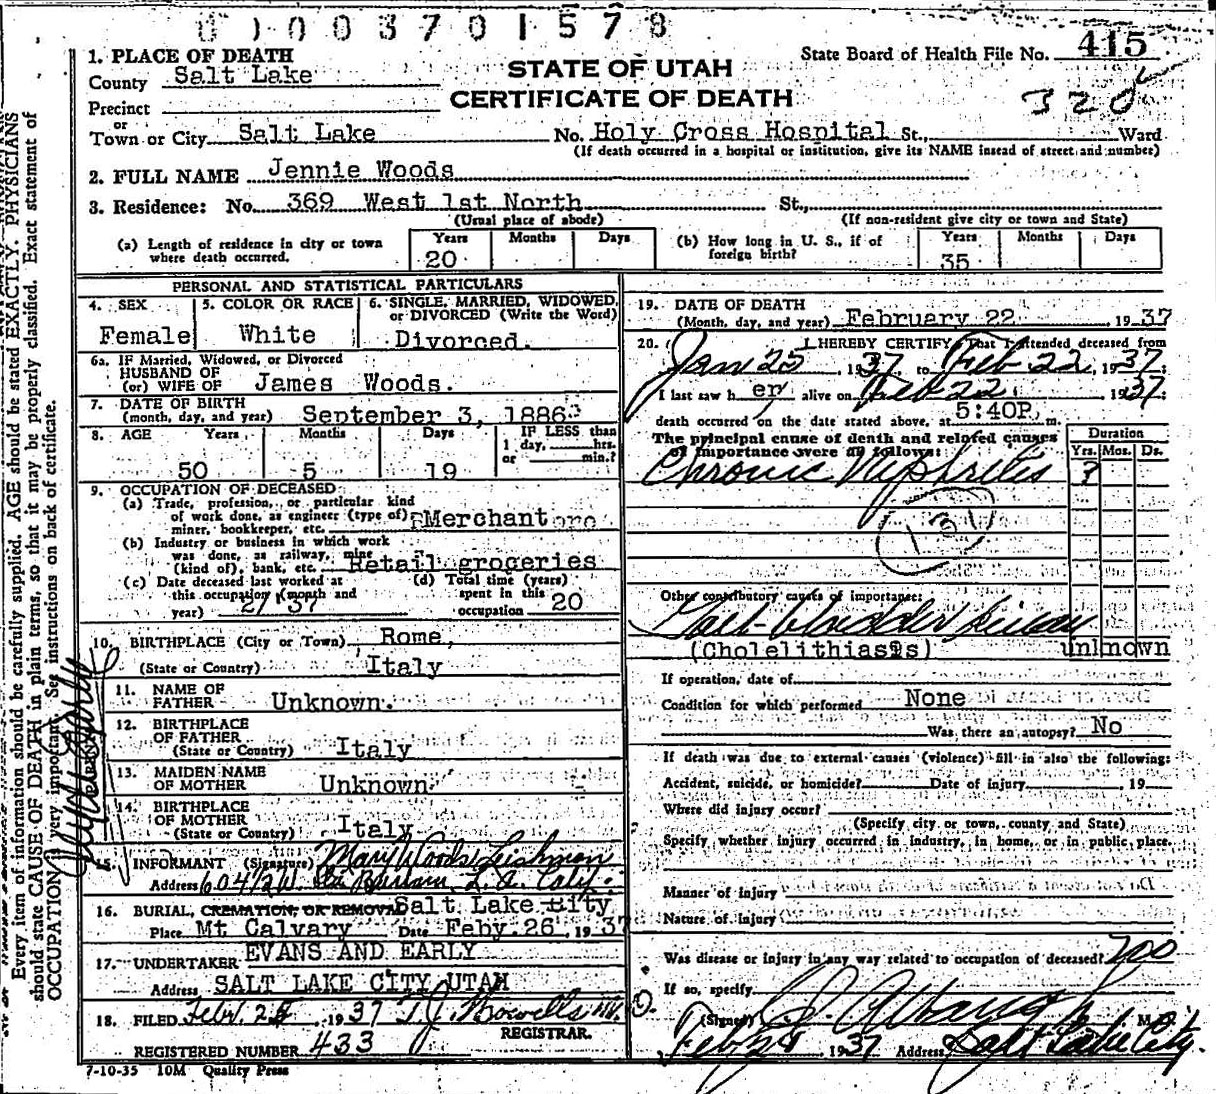 0 1 0 0 3 7 0 1 5 7 8
State Board of Health File No. 415
320
STATE OF UTAH
CERTIFICATE OF DEATH
1. PLACE OF DEATH
County Salt Lake
Precinct
or
Town or City Salt Lake No. Holy Cross Hospital St., Ward
(If death occurred in a hospital or institution, give its NAME instead of street and number)
2. FULL NAME Jennie Woods
3. Residence: No. 369 West 1st North St.,
(Usual place of abode) (If non-resident give city or town and State)
(a) Length of residence in city or town where death occurred. Years 20 Months Days
(b) How long in U. S., if of foreign birth? Years 35 Months Days
PERSONAL AND STATISTICAL PARTICULARS
4. SEX Female
5. COLOR OR RACE White
6. SINGLE, MARRIED, WIDOWED, or DIVORCED (Write the Word) Divorced.
6a. IF Married, Widowed, or Divorced
HUSBAND OF
(or) WIFE OF James Woods.
7. DATE OF BIRTH
(month, day, and year) September 3, 1886
8. AGE Years 50 Months 5 Days 19
IF LESS than 1 day, hrs. or min.?
9. OCCUPATION OF DECEASED
(a) Trade, profession, or particular kind
of work done, as engineer (type of) Merchant
miner, bookkeeper, etc.
(b) Industry or business in which work
was done, as railway, mine
(kind of), bank, etc. Retail groceries
(c) Date deceased last worked at this occupation (month and year) 2/ 37
(d) Total time (years) spent in this occupation 20
10. BIRTHPLACE (City or Town) Rome,
(State or Country) Italy
11. NAME OF FATHER Unknown.
12. BIRTHPLACE OF FATHER
(State or Country) Italy
13. MAIDEN NAME OF MOTHER Unknown
14. BIRTHPLACE OF MOTHER
(State or Country) Italy
15. INFORMANT (Signature) Mary Woods Leishman
Address 604 1/2 W. L. A. Calif.
16. BURIAL, CREMATION, OR REMOVAL Salt Lake City
Place Mt Calvary Date Feby. 26, 1937
17. UNDERTAKER EVANS AND EARLY
Address SALT LAKE CITY UTAH
18. FILED Febr. 1937 T. J. Howells
REGISTRAR.
REGISTERED NUMBER 433
7-10-35 10M Quality Press
19. DATE OF DEATH
(Month, day, and year) February 22 1937
20. I HEREBY CERTIFY, That I attended deceased from
Jan 25, 1937, to Feb 22, 1937;
I last saw her alive on Feb 22 1937;
death occurred on the date stated above, at 5:40P m.
The principal cause of death and related causes of importance were as follows:
Duration
Yrs. Mos. Ds.
Chronic Nephritis ?
131
Other contributory causes of importance:
Gall-bladder disease
(Cholelithiasis) unknown
If operation, date of
Condition for which performed None
Was there an autopsy? No
If death was due to external causes (violence) fill in also the following:
Accident, suicide, or homicide? Date of injury 19
Where did injury occur?
(Specify city or town, county and State)
Specify whether injury occurred in industry, in home, or in public place.
Manner of injury
Nature of injury
Was disease or injury in any way related to occupation of deceased? no
If so, specify
(Signed) M. D.
Feb 1937 Address Salt Lake City.
Every item of information should be carefully supplied. AGE should be stated EXACTLY. PHYSICIANS
should state CAUSE OF DEATH in plain terms, so that it may be properly classified. Exact statement of
OCCUPATION is very important. See instructions on back of certificate.